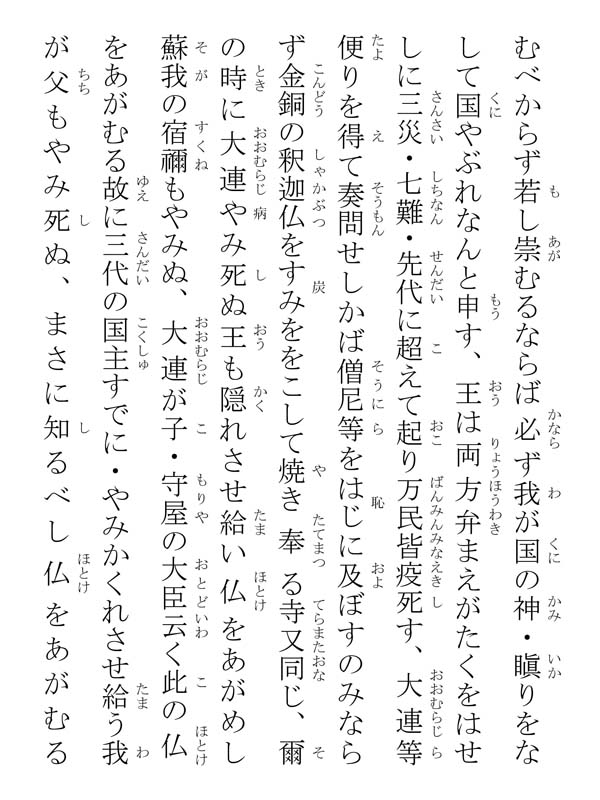 むべからず若し崇むるならば必ず我が国の神・瞋りをな
して国やぶれなんと申す、王は両方弁まえがたくをはせ
しに三災・七難・先代に超えて起り万民皆疫死す、大連等
便りを得て奏問せしかば僧尼等をはじに及ぼすのみなら
ず金銅の釈迦仏をすみををこして焼き奉る寺又同じ、爾
の時に大連やみ死ぬ王も隠れさせ給い仏をあがめし
蘇我の宿禰もやみぬ、大連が子・守屋の大臣云く此の仏
をあがむる故に三代の国主すでに・やみかくれさせ給う我
が父もやみ死ぬ、まさに知るべし仏をあがむる